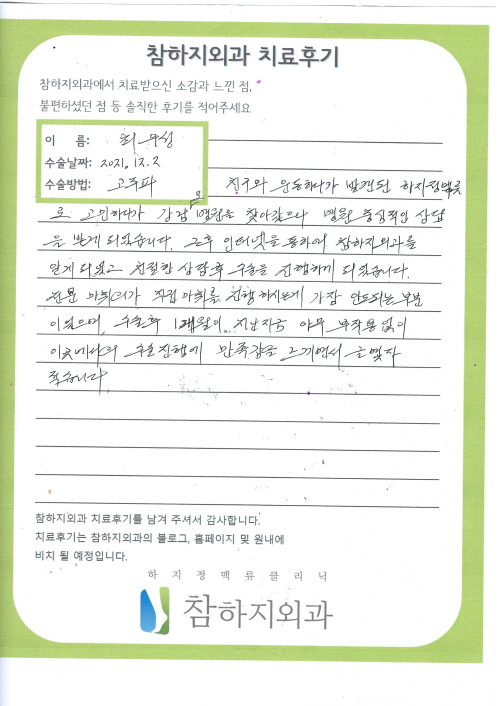 참하지외과 치료후기
참하지외과에서 치료받으신 소감과 느낀 점,
불편하셨던 점 등 솔직한 후기를 적어주세요
이 름: 최
수술날짜: 2021. 12. 2
수술방법: 고주파
친구와 운동하다가 발견된 하지정맥류
로 고민하다가 강남 모 병원을 찾아갔으나 병원 중심적인 상담
을 받게 되었습니다. 그후 인터넷을 통하여 참하지외과를
알게 되었고 친절한 상담후 수술을 진행하게 되었습니다.
전문 마취의가 직접 마취를 진행하시는게 가장 안도되는 부분
이었으며, 수술후 1개월이 지난지금 아무 부작용없이
수술진행에 만족감을 느끼면서 글 몇자
적습니다.
참하지외과 치료후기를 남겨 주셔서 감사합니다.
치료후기는 참하지외과의 블로그, 홈페이지 및 원내에
비치 될 예정입니다.
하지정맥류클리닉
참하지외과